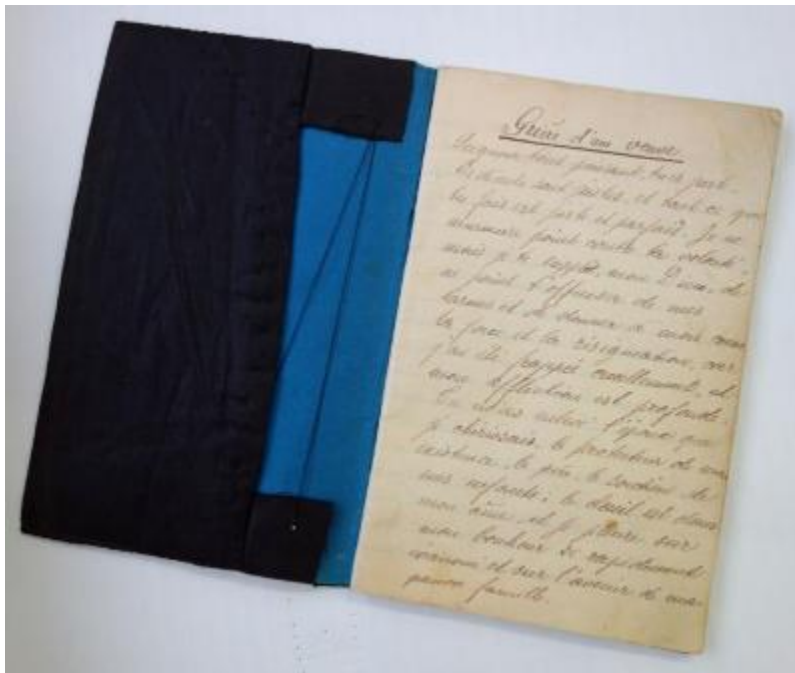 Prière d'une veuve.
Seigneur tout puissant, tes juge-
ments sont saints et tout ce que
tu fais est juste et parfait. Je ne
murmure point contre ta volonté
mais je te supplie, mon Dieu, de
ne point t'offenser de mes
larmes et de donner à mon cœur
la force et la résignation, car
j'ai été frappée cruellement, et
mon affliction est profonde.
Tu m'as enlevé l'époux que
je chérissais, le protecteur de mon
existence, le père, le soutien de
mes enfants; le deuil est dans
mon âme, et je pleure sur
mon bonheur si rapidement
évanoui et sur l'avenir de ma
pauvre famille.